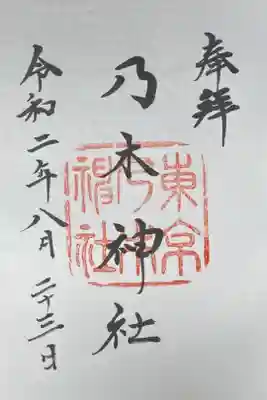 奉拝
乃木神社
東京乃木神社
令和二年八月二十三日